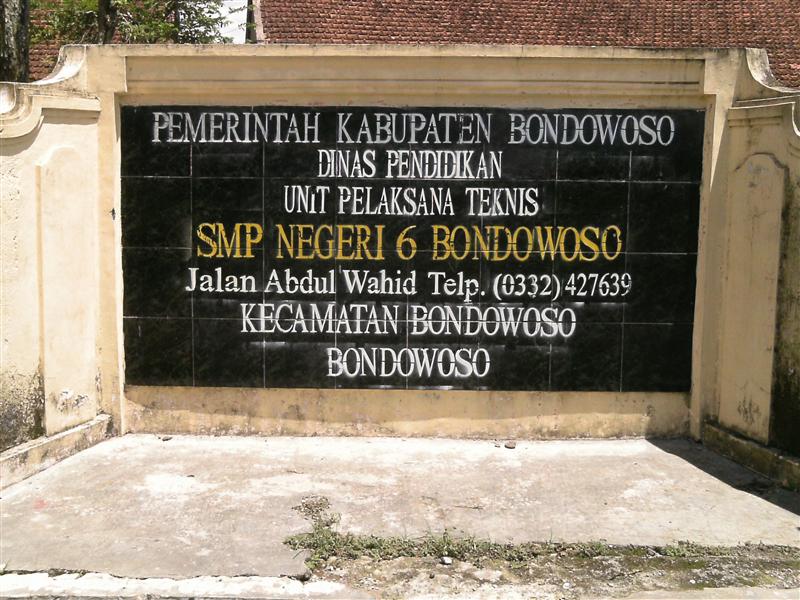 PEMERINTAH KABUPATEN BONDOWOSO
DINAS PENDIDIKAN
UNIT PELAKSANA TEKNIS
SMP NEGERI 6 BONDOWOSO
Jalan Abdul Wahid Telp. (0332) 427639
KECAMATAN BONDOWOSO
BONDOWOSO